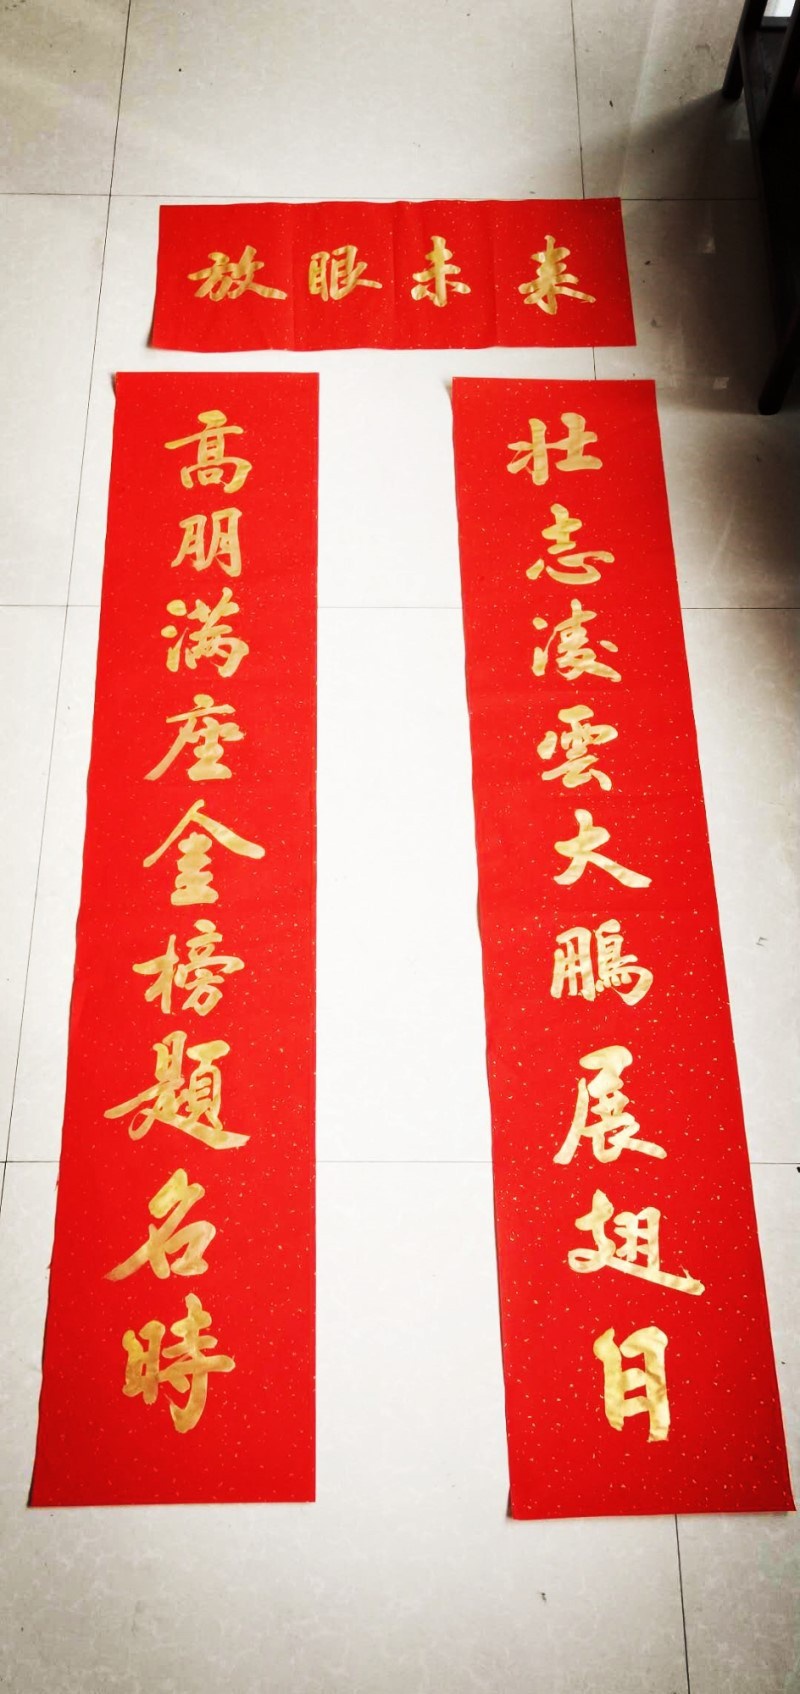 放眼未来
壮志凌雲大鵬展翅日
髙朋满座金榜題名時